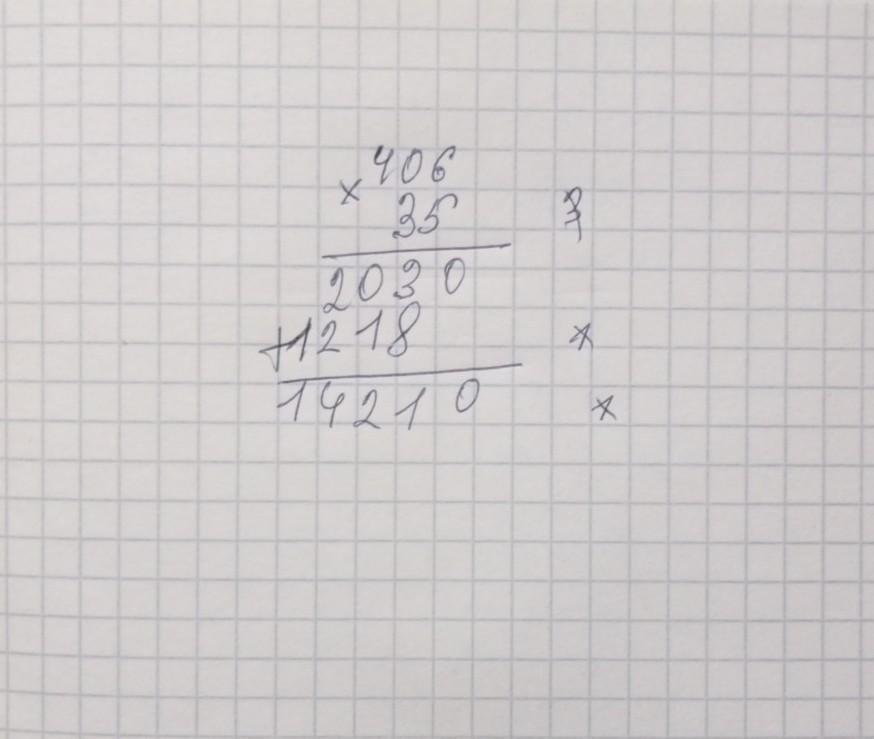 406
× 35
2030
+1218
14210